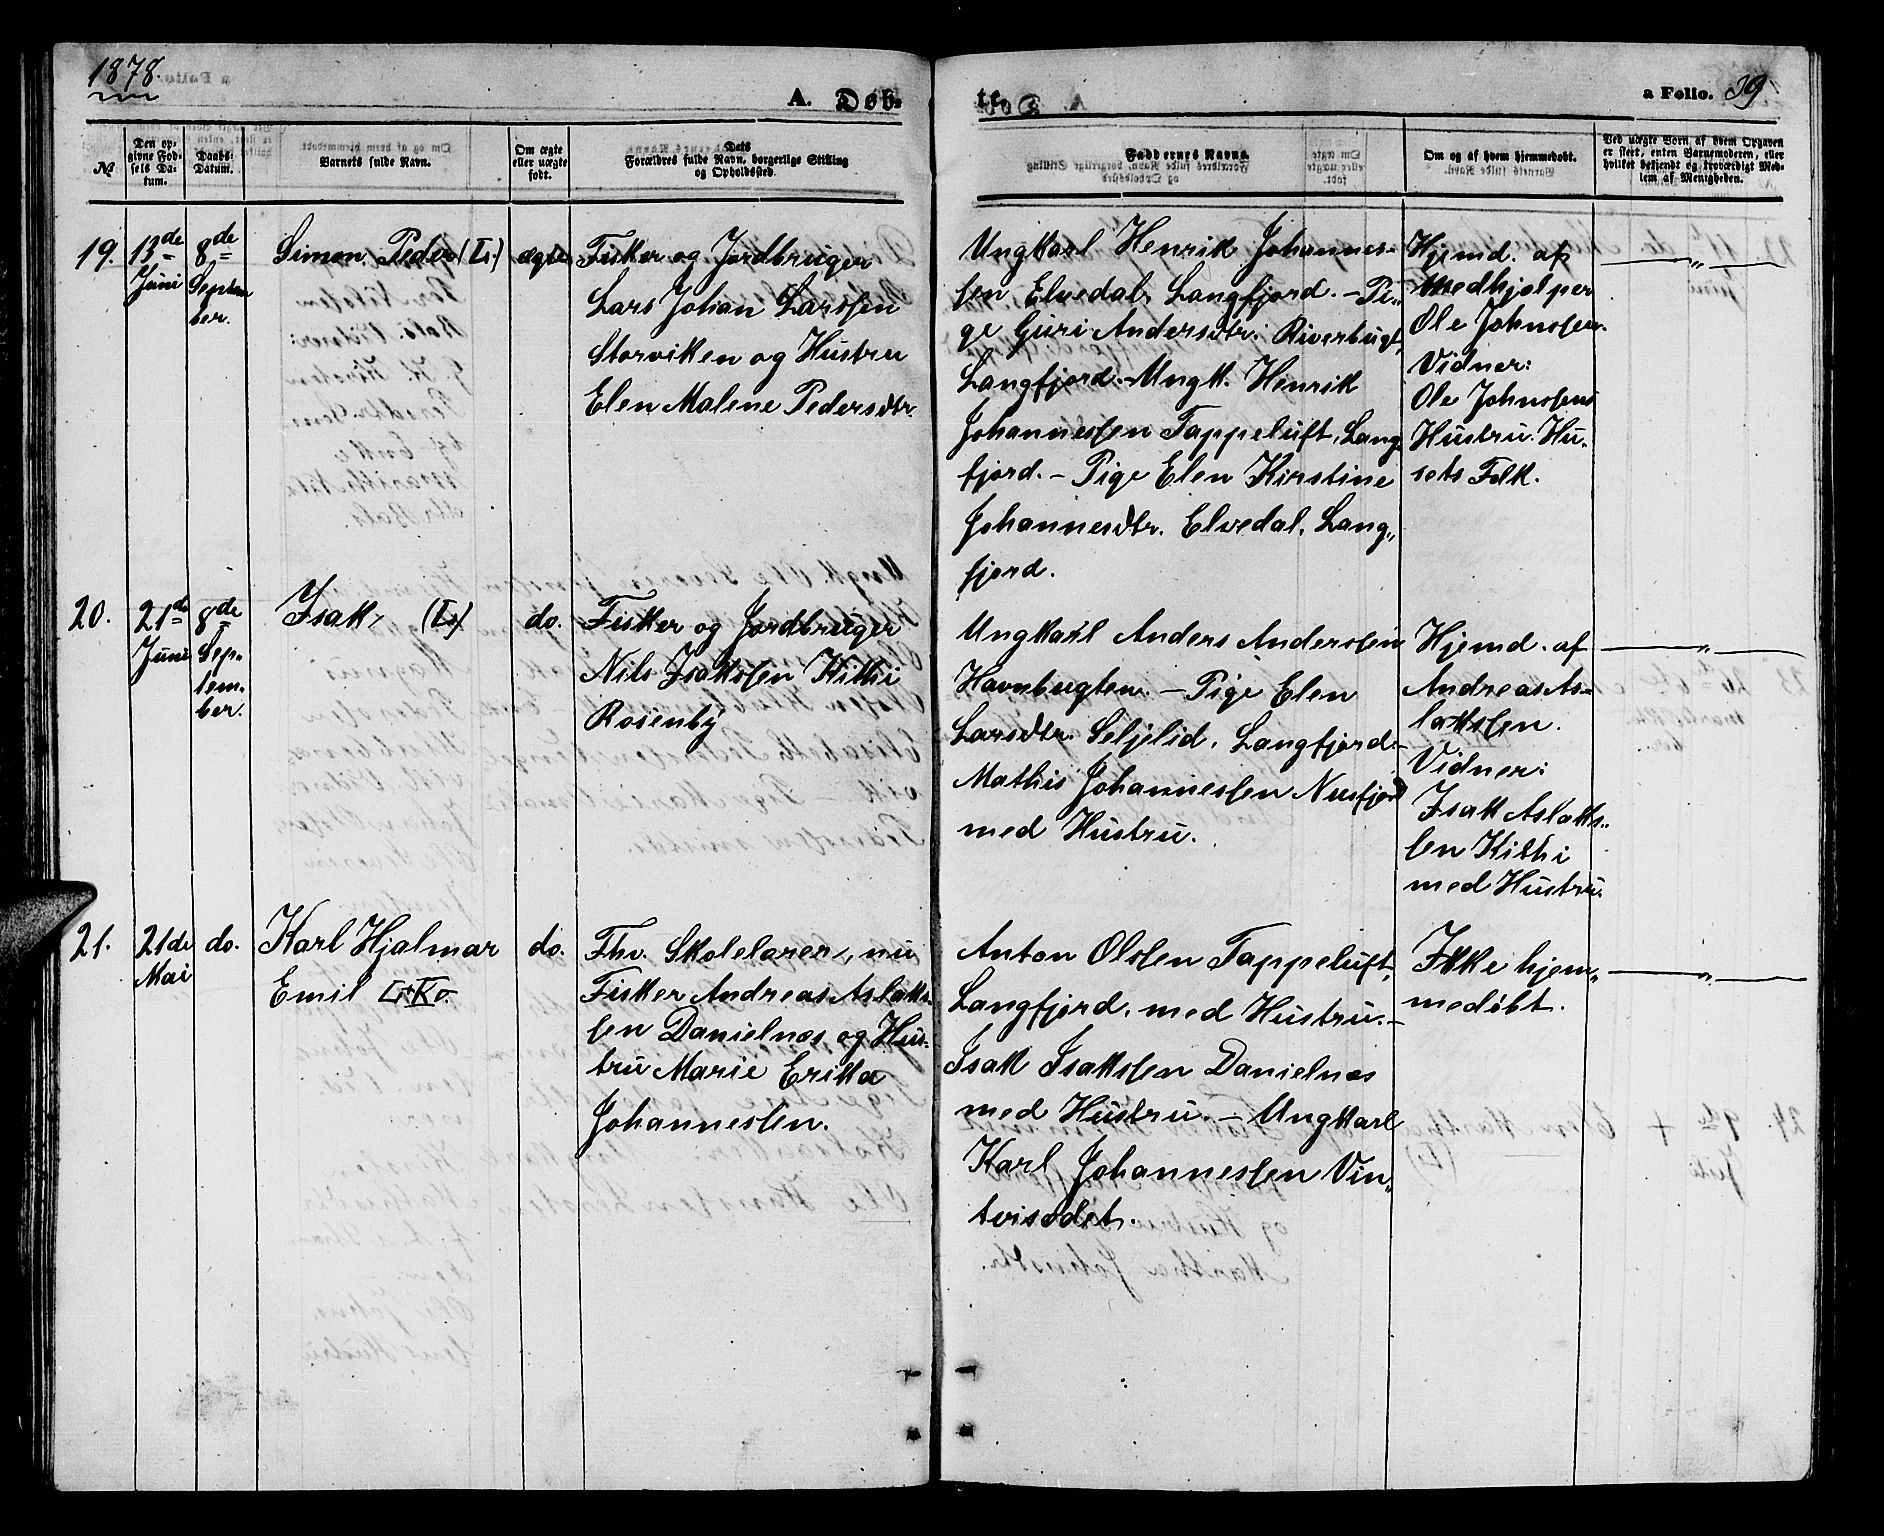 1878.
A. Døb-
te.
a Folio. 39
No
Den op-
givne Fød-
sels Da-
tum.
Daabs-
Datum.
Barnets fulde Navn.
Om ægte
eller uægte
født.
Dets
Forældres fulde Navn, borgerlige Stilling
og Opholdssted.
Faddernes Navne.
Om og af hvem hjemmedøbt.
Ved uægte Børn af hvem Opgaven
er skeet, enten Barnemoderen, eller
hvilket bekjendt og troværdigt Med-
lem af Menigheden.
19.
13de
Juni
8de
Septem
ber.
Simon Peder (L.)
ægte
Fisker og Jordbruger
Lars Johan Larssen
Storviken og Hustru
Elen Malene Pedersdtr.
Ungkarl Henrik Johannes-
sen Elvedal, Langfjord. - Pi-
ge Guri Andersdtr. Riverbugt,
Langfjord. - Ungk. Henrik
Johannessen Tappeluft, Lang
fjord. - Pige Elen Kirstine
Johannesdtr. Elvedal, Lang„
fjord.
Hjemd. af
Medhjelper
Ole Johnssen.
Vidner:
Ole Johnsens
Hustru. Hu-
sets Folk.
„
20.
21de
Juni
8de
Sep-
tem-
ber.
Isak, (L.)
do.
Fisker og Jordbruger
Nils Isaksen Kitti
Rosenby
Ungkarl Anders Anderssen
Havnbugten. - Pige Elen
Larsdtr. Seljelid, Langfjord.-
Mathis Johannessen Nusfjord
med Hustru.
Hjemd. af
Andreas As-
lakssen.
Vidner:
Isak Aslaks-
sen Kitti
med Hustru.
„
21.
21de
Mai
do.
Karl Hjalmar
Emil L+Kv.
do.
Fhv. Skolelærer, nu
Fisker Andreas Aslaks-
sen Danielnæs og Hus-
tru Marie Erika
Johannessen.
Anton Olssen Tappeluft,
Langfjord, med Hustru. -
Isak Isaksen Danielnæs
med Hustru. - Ungkarl
Karl Johannessen Vin„
tvisødet.
Ikke hjem„
medøbt.
„